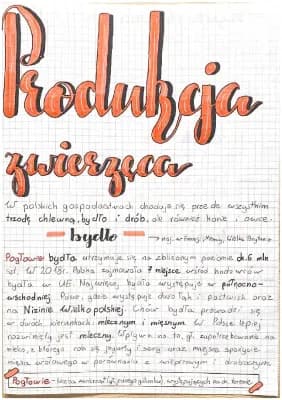 Produkcja
zwierzęca
W polskich gospodarstwach hoduje się przede wszystkim
trzodę chlewną, bydło i drób, ale również konie i owce.
bydło → np. w Francji, Niemcy, Wielka Brytania
Pogłowie bydła utrzymuje się na zbliżonym poziomie ok. 6 mln
szt. W 2018r. Polska zajmowała 7 miejsce wśród hodowców
bydła w UE. Najwięcej bydła występuje w północno-
wschodniej Polsce, gdzie występuje dużo łąk i pastwisk oraz
na Nizinie Wielkopolskiej. Chów bydła prowadzi się
w dwóch kierunkach: mlecznym i mięsnym. W Polsce lepiej
rozwinięty jest mleczny. Wpływa na to, gł. zapotrzebowanie na
mleko, z którego robi się jogurty i sery oraz mniejsze spożycie
mięsa wołowego w porównaniu z wieprzowym i drobiowym.
Pogłowie - liczba zwierząt danego gatunku, występujących na